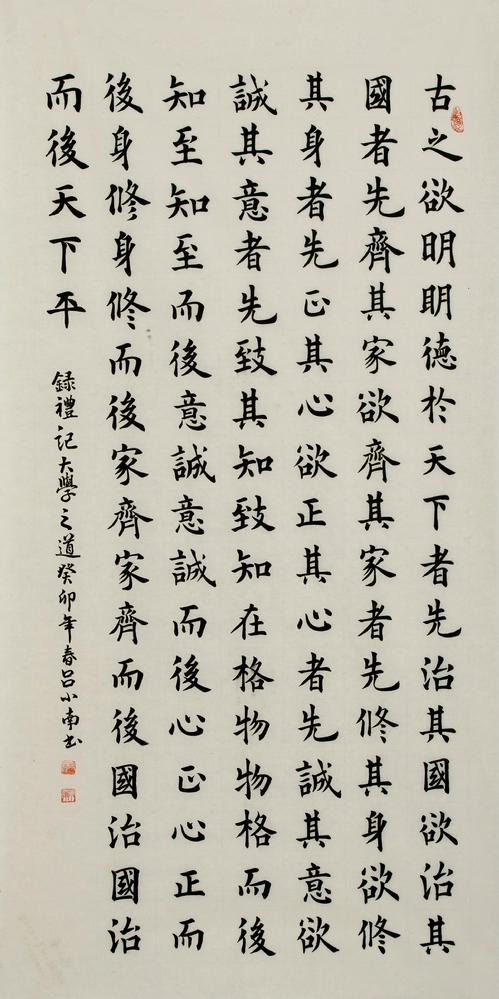 古之欲明明德於天下者先治其國欲治其
國者先齊其家欲齊其家者先修其身欲修
其身者先正其心欲正其心者先誠其意欲
誠其意者先致其知致知在格物物格而後
知至知至而後意誠意誠而後心正心正而
後身修身修而後家齊家齊而後國治國治
而後天下平
録禮記大學之道癸卯年春呂小南書